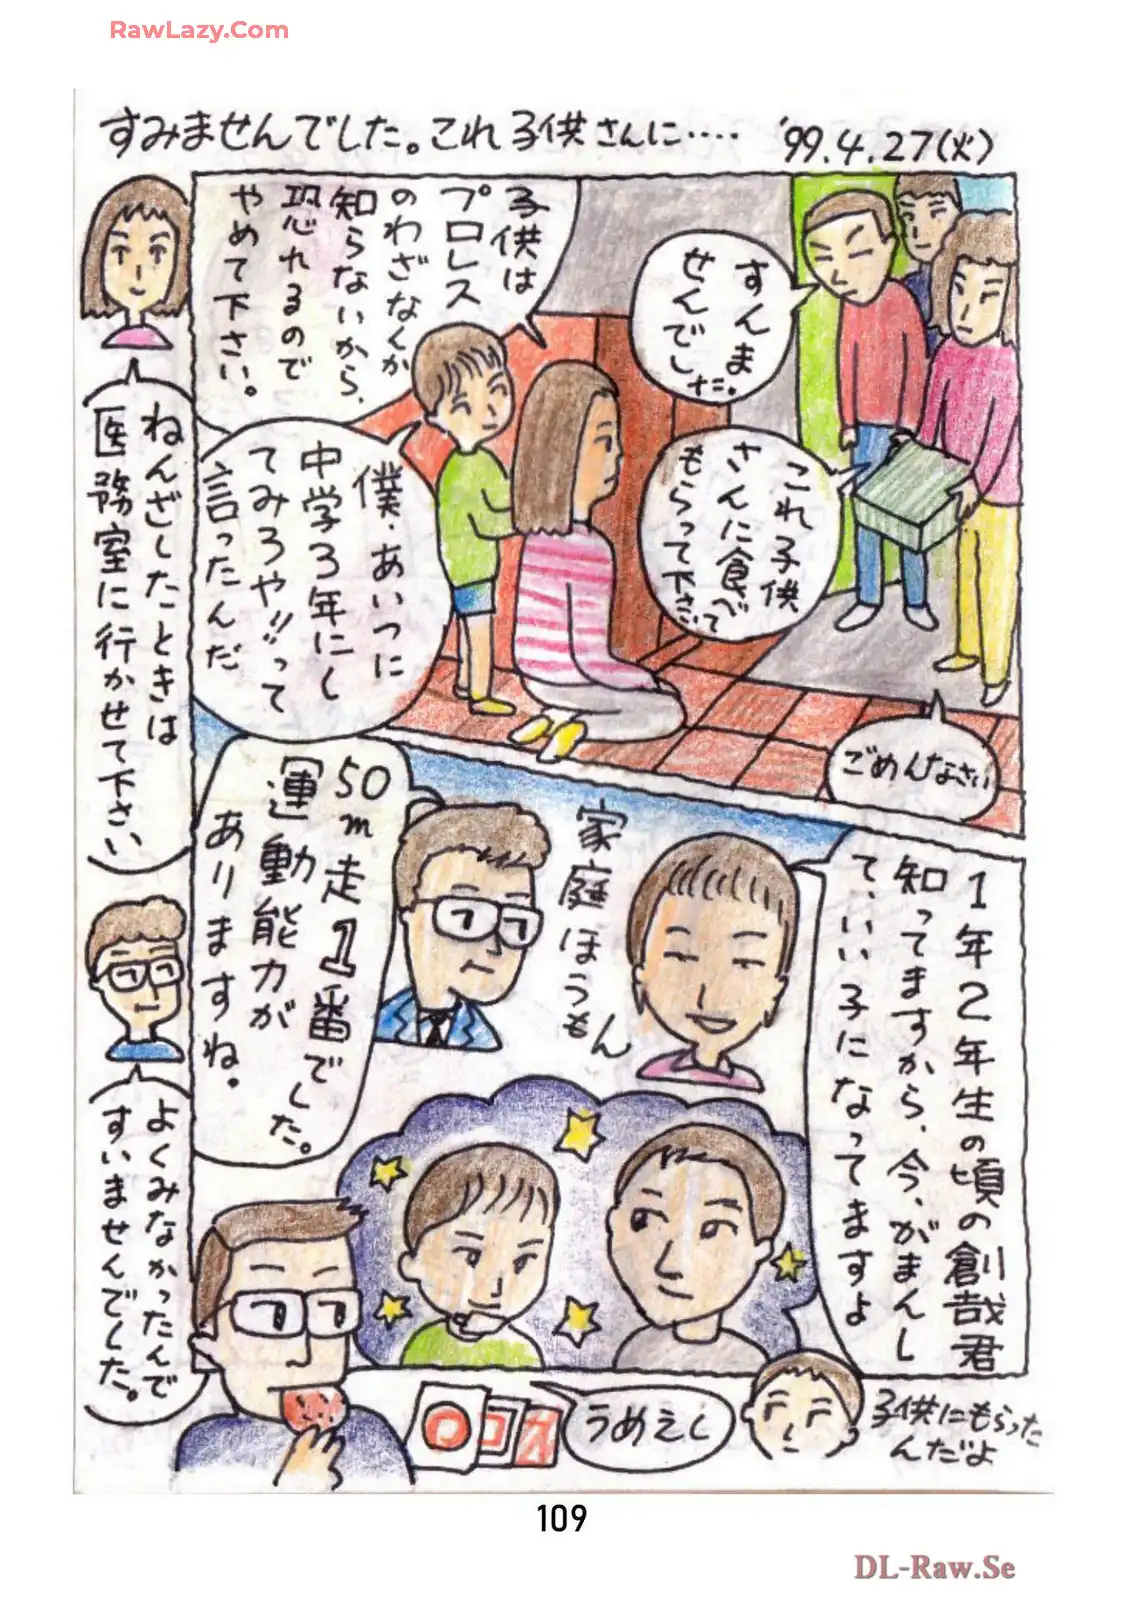 RawLazy.Com
すみませんでした。これ子供さんに‥‥
'99.4.27(火)
子供は
プロレス
のわざなくか
知らないから、
恐れるので
やめて下さい。
すんま
せんでした.
これ子供
さんに食べ
もらって下さいて
僕・あいつに
中学3年にし
てみろや!!って
言ったんだ
ごめんなさい
ねんざしたときは
医務室に行かせて下さい
1年2年生の頃の創哉君
知ってますから、今、がまんし
て、いい子になってますよ
家庭ほうもん
50m走1番でした。
運動能力が
ありますね.
よくみなかったんで
すいませんでした。
ロコオ
うめえし
子供にもらった
んだよ
109
DL-Raw.Se